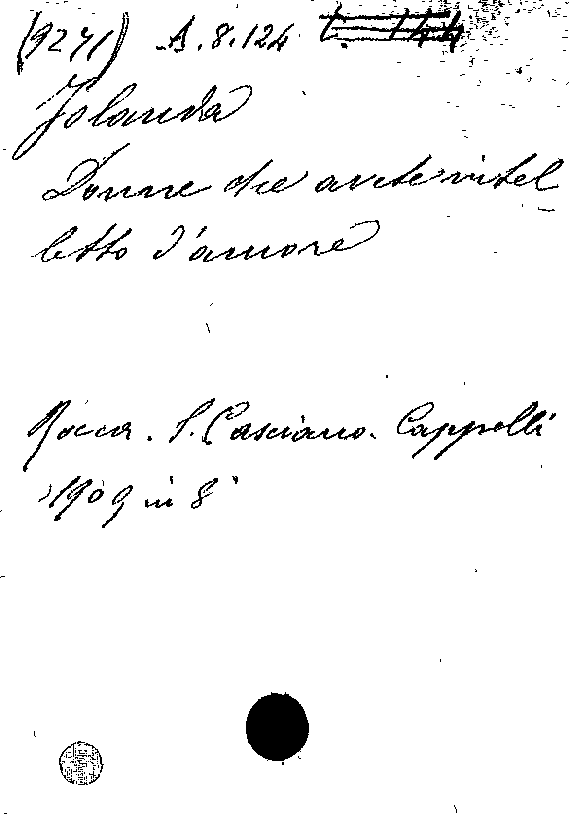 (9271) A.8.124 L. 144
Jolanda
Donne che avete intel
letto d'amore
Rocca. S. Casciano. Cappelli
1909 in 8°